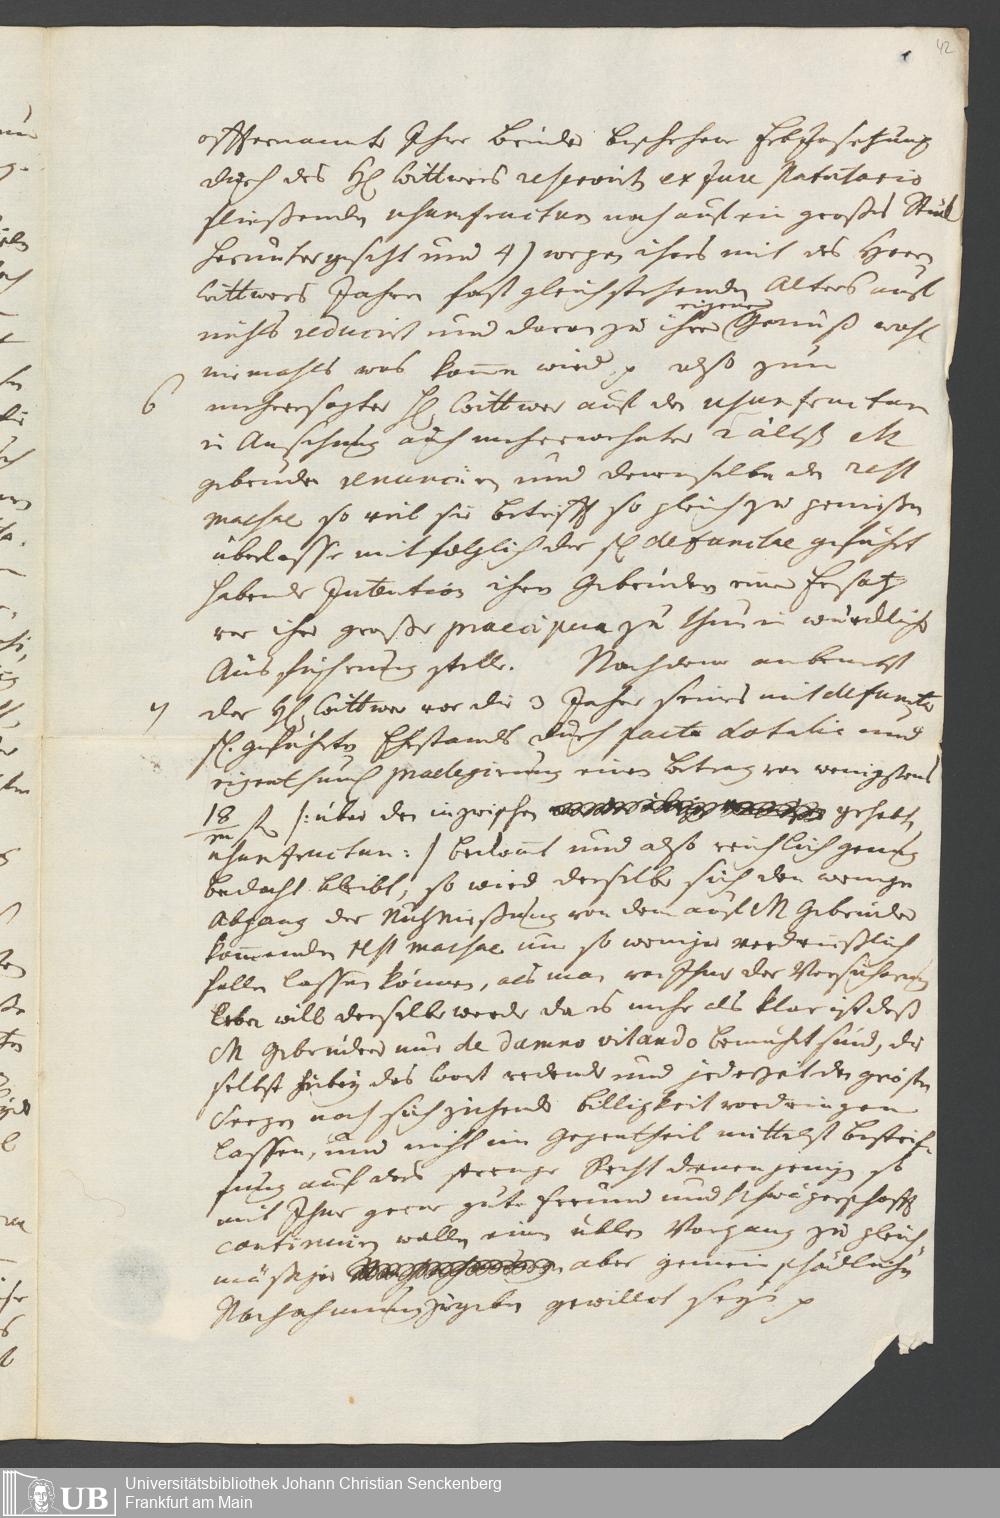 42
offternannte Ihre beeder beschehene Erbseinsetzung
durch des H. Wittwers respectu ex jure statutario
fließenden usumfructum noch auf ein großes Stück
heruntergesetzt und 4) wegen ihres mit des Herrn
Wittwers Jahren fast gleichstehenden Alters auf
nichts reducirt und daran zu ihren eigenen Genuß wohl
niemahls was komen wird, also zum
6 mehrersagter H. Wittwer auf den usumfructum
in Ansehung auch mehrerwehnter 2 ältst M
gebrüder renunciren und denenselben den rest
massae so viel sie betrifft so gleich zu genießen
überlassen mitfolglich der sel. defunctae geführt
habende Intention ihren Gebrüdern einen Ersatz
vor ihre große praecipua zu thun in würcklich
Ausführung stelle. Nachdeme anbenebst
7 der H. Wittwer vor die 3 Jahre seines mit defuncta
sel. geführten Ehestands durch pacta dotalia und
eigenthum. praelegirung einen Betrag von wenigstens
18/m fl. /: über den inzwischen gehabten
usumfructum :/ bekomt und also reichlich genug
bedacht bleibt, so wird derselbe sich den wenigen
Abgang der Nutznießung von dem auf M Gebrüder
komenden rest massae um so weniger verdrüßlich
fallen lassen können, als man von Ihme der Versicherung
leben will derselbe werde da es mehr als klar ist daß
M Gebrüdere nur de damno vitando bemühet sind, die
selbst hierbey das wort redende und jederzeit den grösten
Seegen nach sich ziehende Billigkeit vordringen
lassen, und nicht im Gegentheil mittelst Bestreif-
fung auf das strenge Recht denenjenigen so
mit Ihme gerne gute Freund und Schwägerschafft
continuiren wollen einen üblen Vorgang zu gleich
mäßiger aber gemeinschädlichen
Nachahmung zugeben gewillet seyn
UB
Universitätsbibliothek Johann Christian Senckenberg
Frankfurt am Main